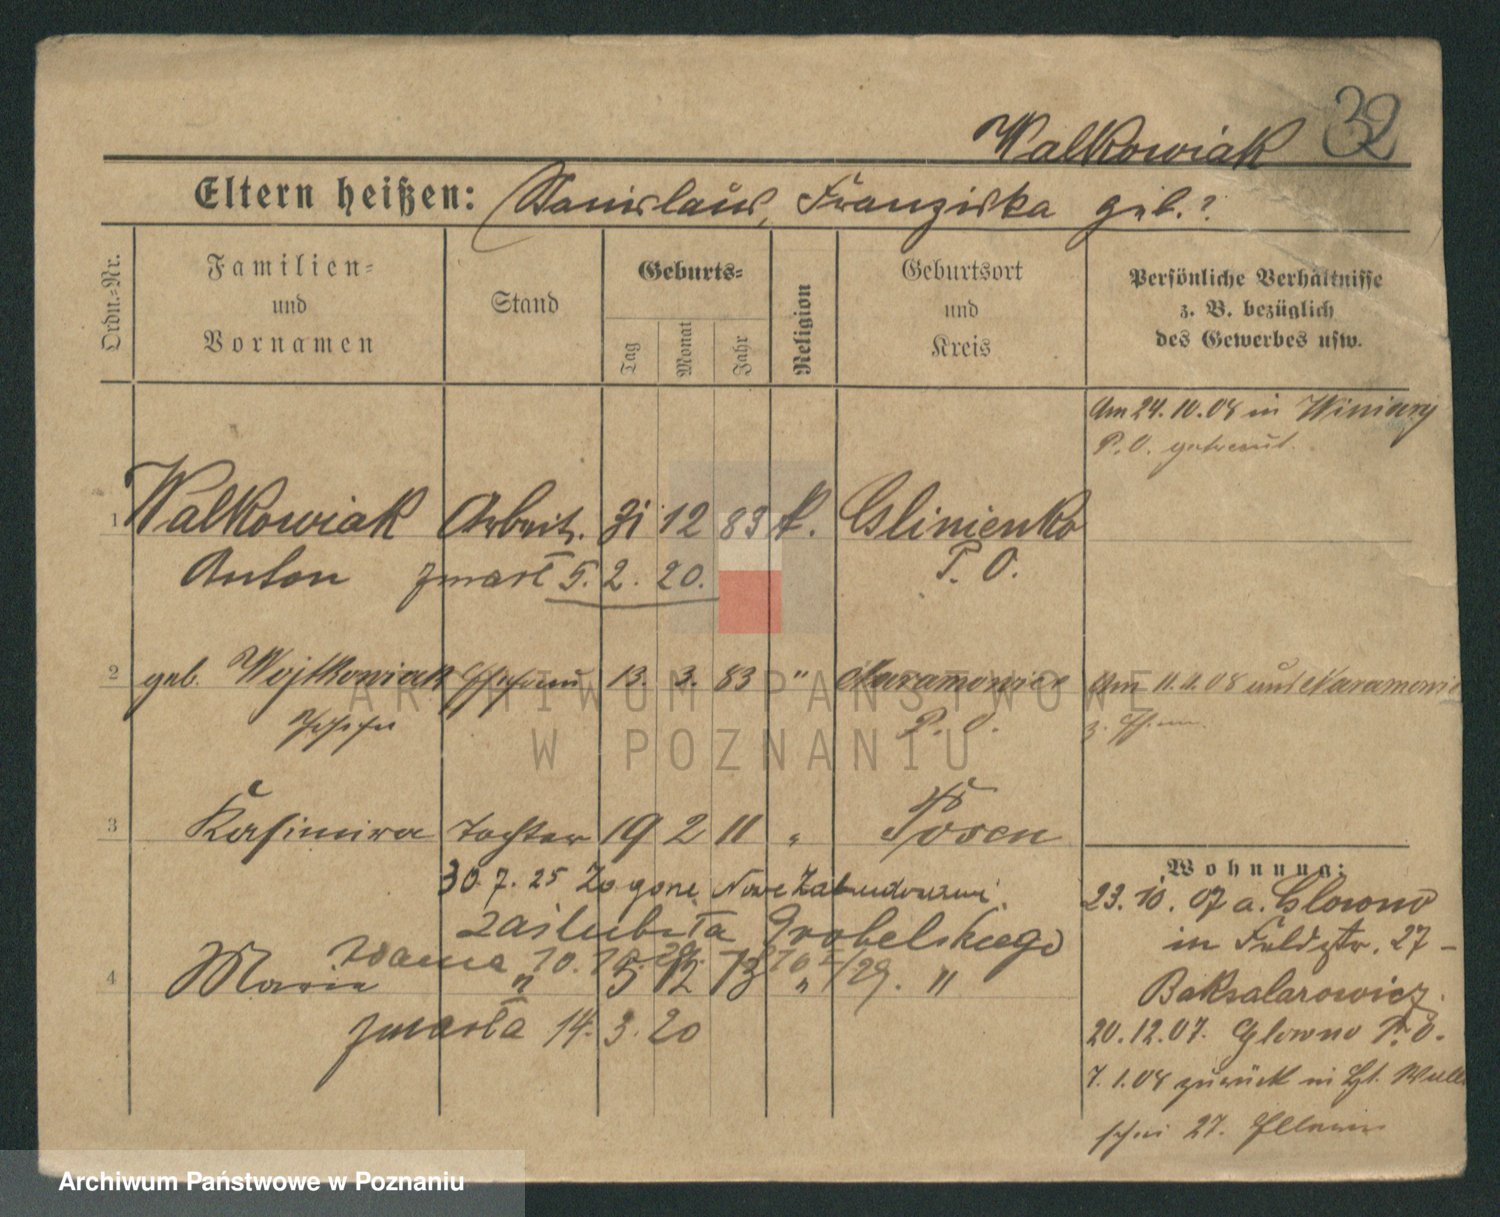 32
Walkowiak
Eltern heißen: Stanislaus, Franziska geb. ?
Ordn.-Nr.
Familien-
und
Vornamen
Stand
Geburts-
Tag
Monat
Jahr
Religion
Geburtsort
und
Kreis
Persönliche Verhältnisse
z. B. bezüglich
des Gewerbes usw.
Am 24.10.08 in Winiary
P. O. getraut.
1 Walkowiak Arbeit. 31 12 83 k. Glinienko
Anton zmarł 5. 2. 20. P. O.
2 geb. Wojtkowiak Ehefrau 13. 3. 83 " Maramowice
P. O.
Am 11.11.08 aus Naramowice
z. Ehem.
3 Kasimira Tochter 19 2 11 " Posen
30. 7. 25 Zagone Nowe Zabudowani.
zaślubiła Grobelskiego
4 Marie " 5 12 13 " "
zmarła 14. 3. 20
Wohnung:
23. 10. 07 a. Glowno
in Feldstr. 27 -
Baksalarowicz.
20.12.07. Glowno P. O.
7. 1. 08 zurück in
27.
ARCHIWUM PAŃSTWOWE
W POZNANIU
Archiwum Państwowe w Poznaniu